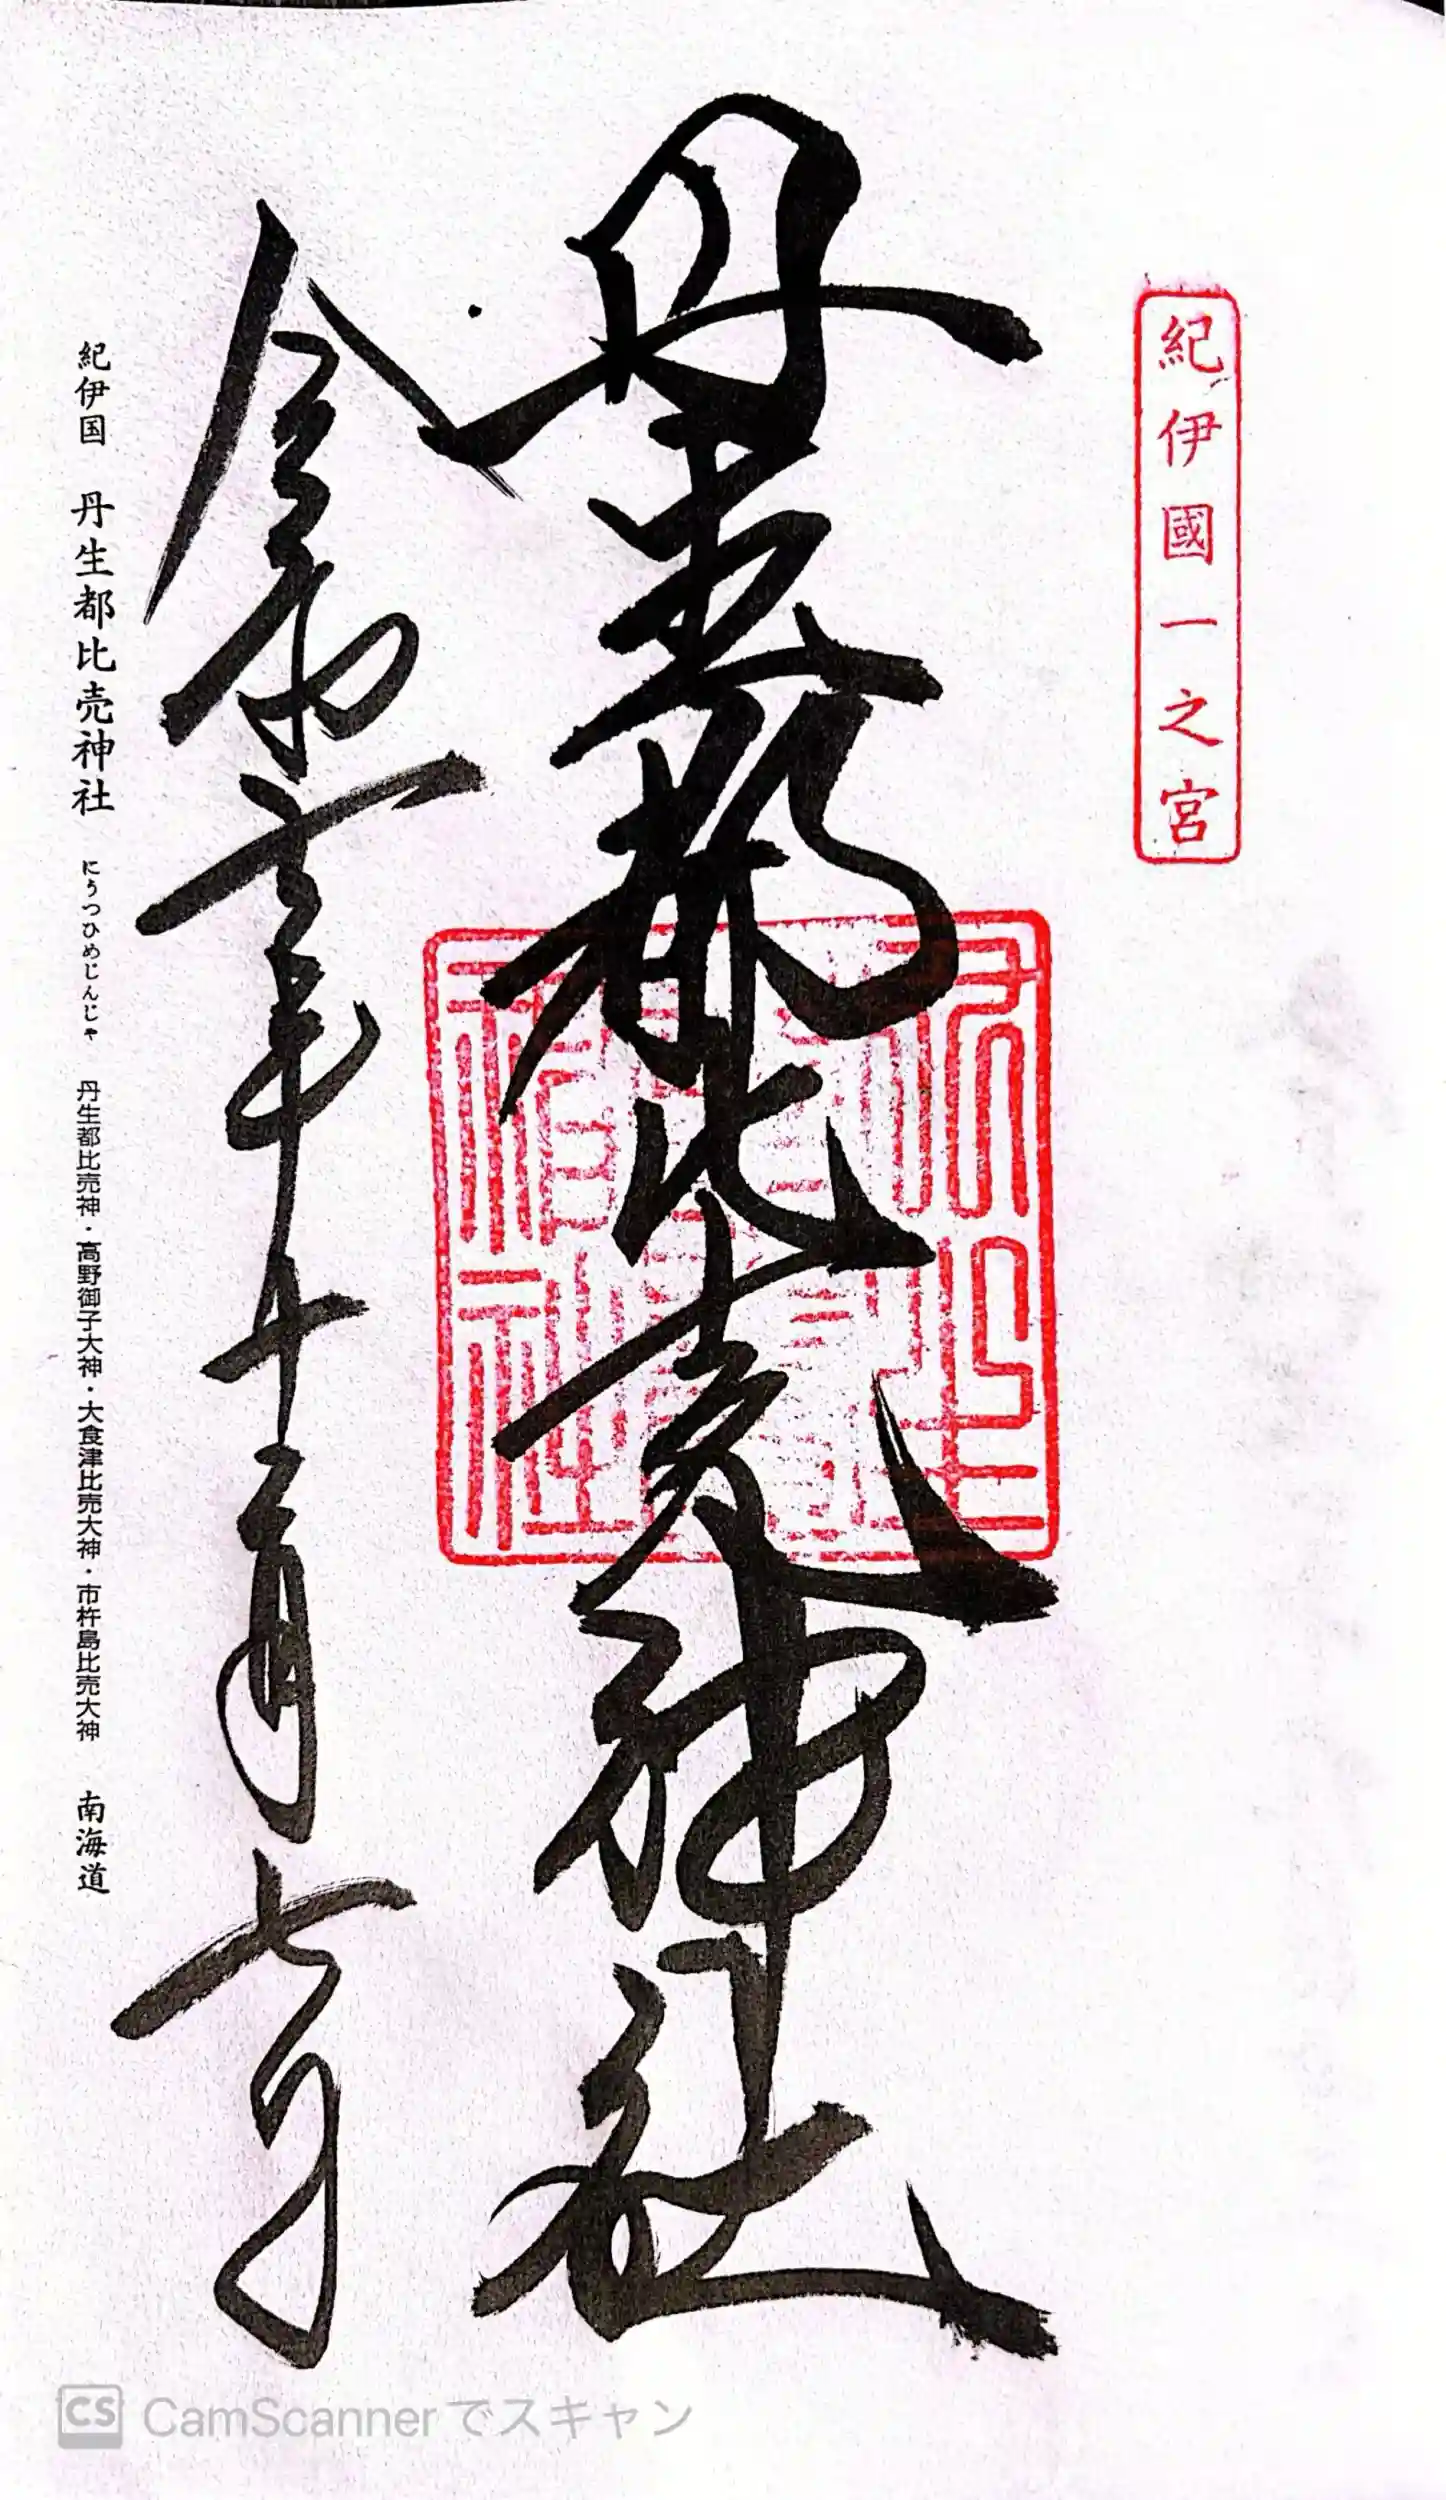 紀伊國一之宮
丹生都比売神社
令和六年十二月七日
紀伊国 丹生都比売神社 にうつひめじんじゃ 丹生都比売神・高野御子大神・大食津比売大神・市杵島比売大神 南海道
CS CamScannerでスキャン